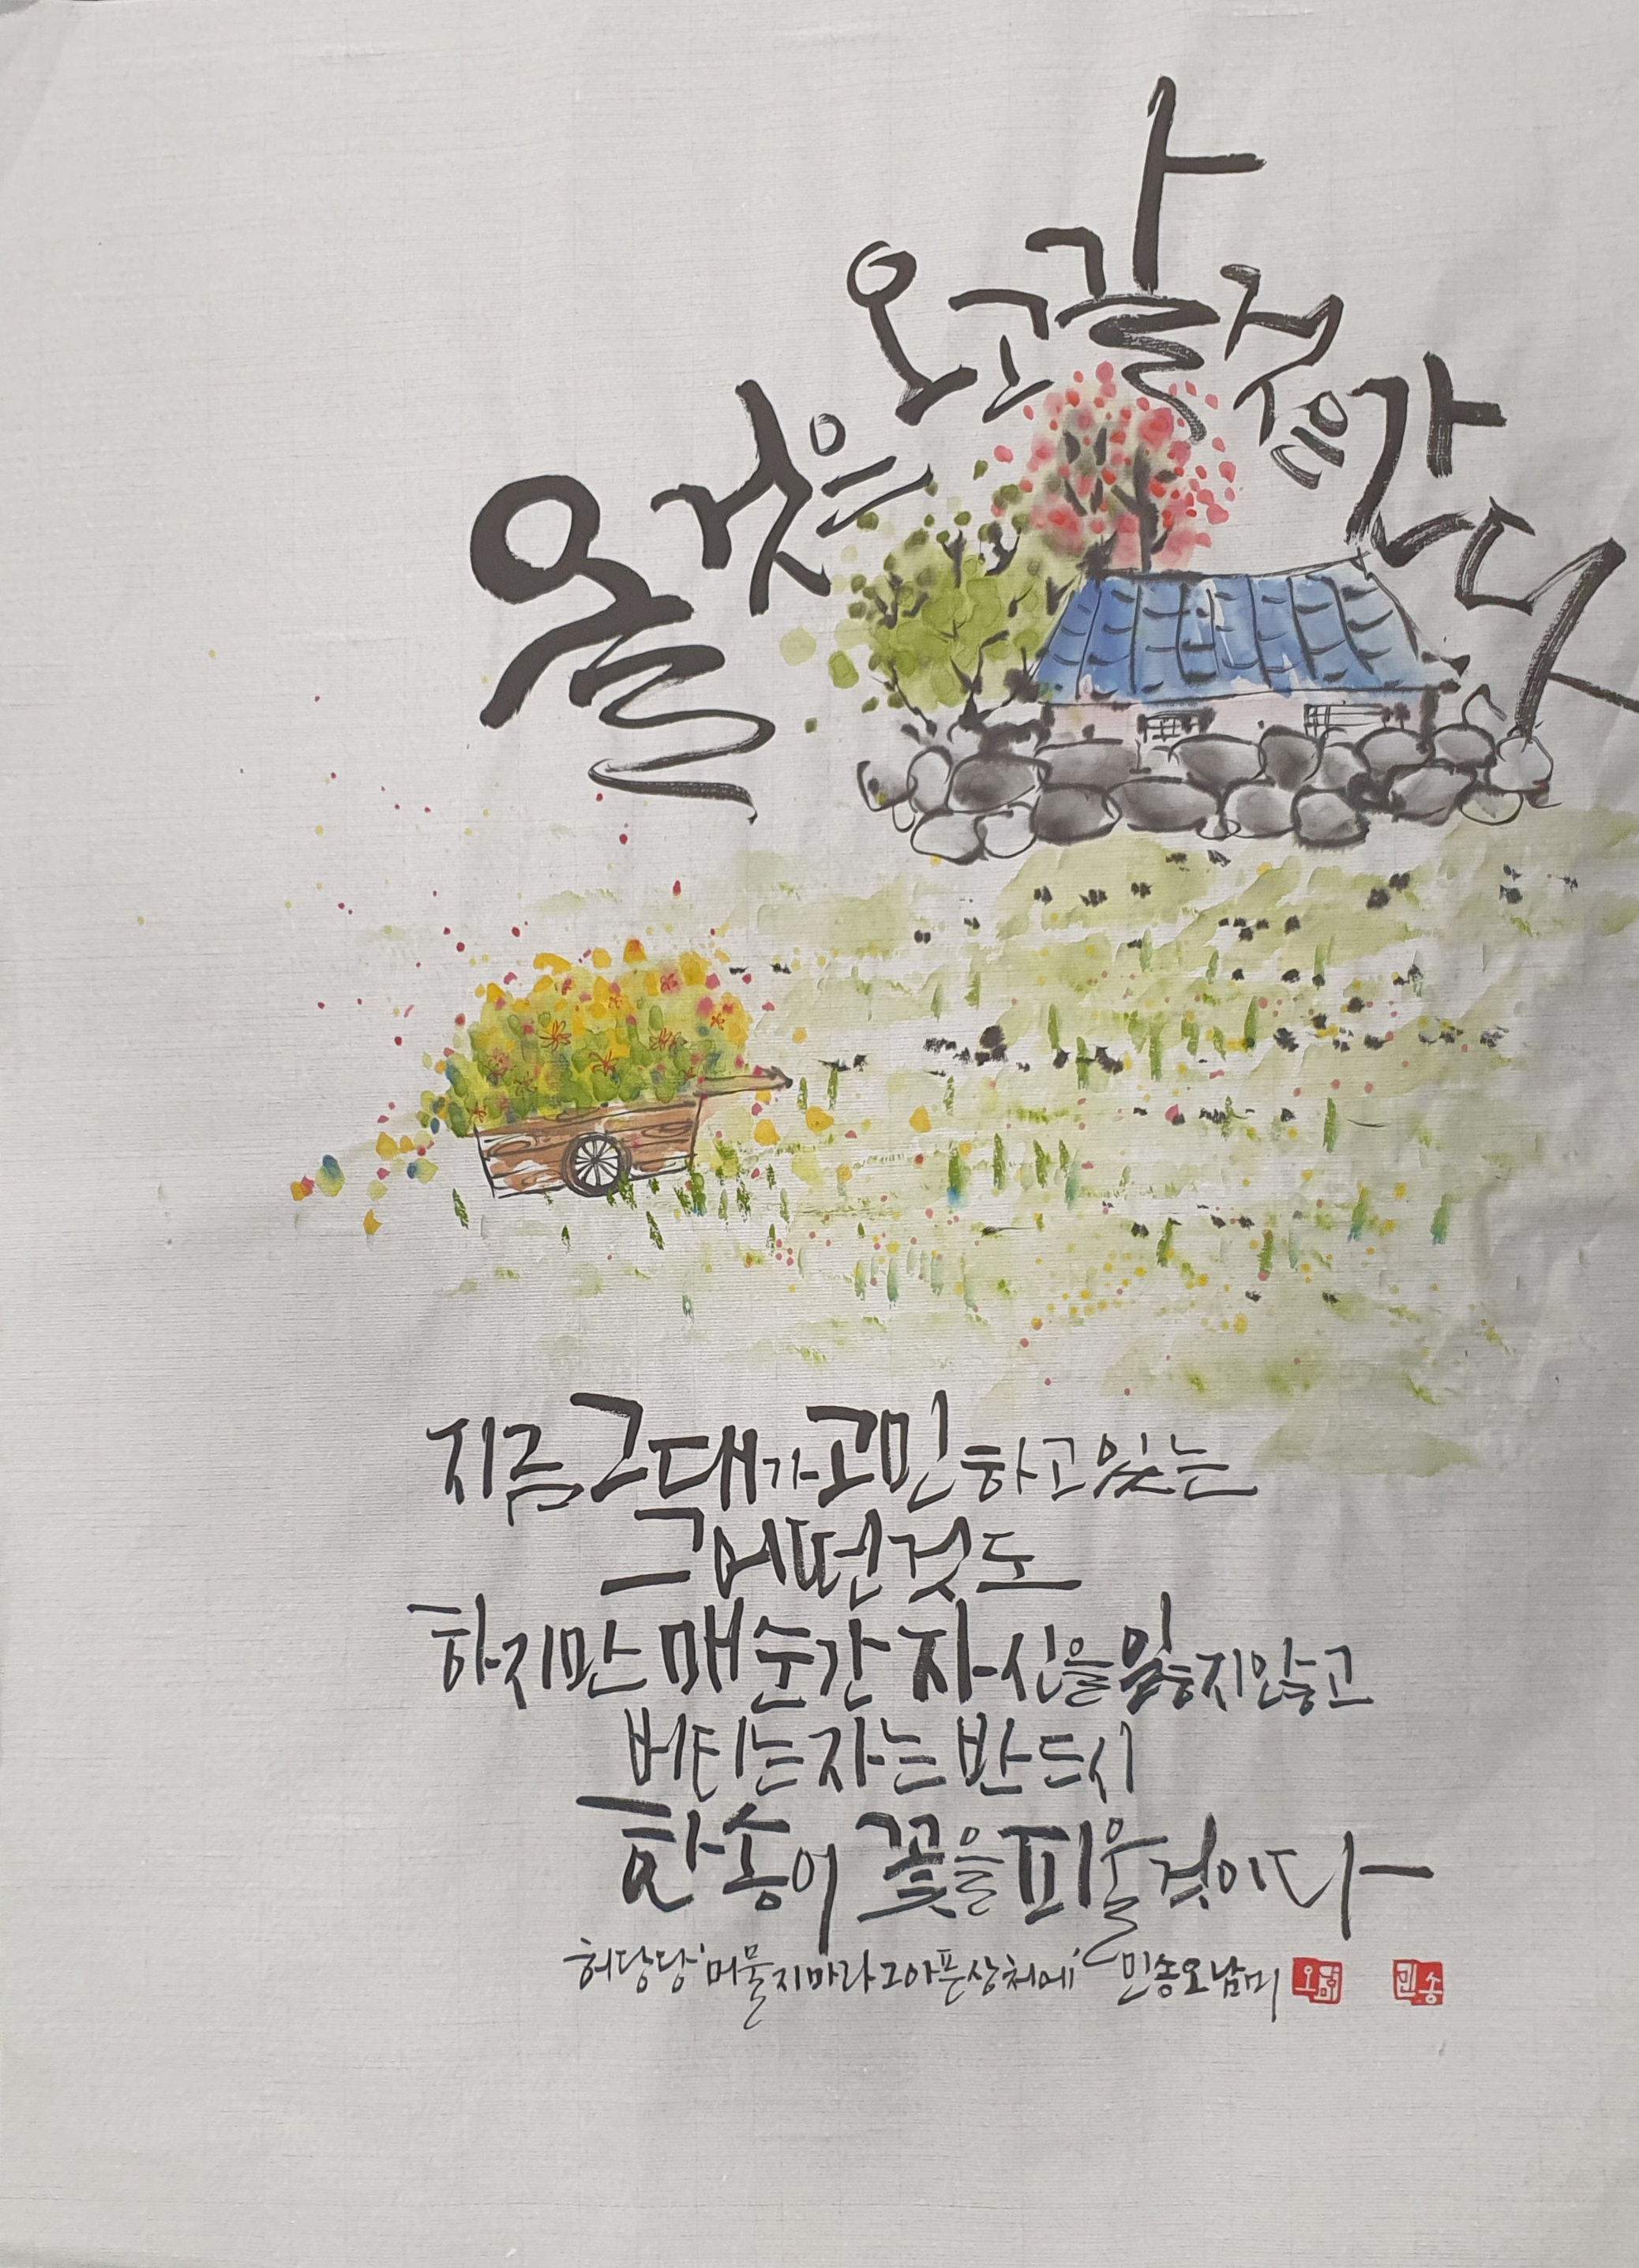 올 것은 오고 갈 것은 간다
지금 그대가 고민하고 있는
그 어떤 것도
하지만 매순간 자신을 잃지 않고
버티는 자는 반드시
한송이 꽃을 피울 것이다
허당당 '머물지 마라 그 아픈 상처에' 민송 오남미
민송